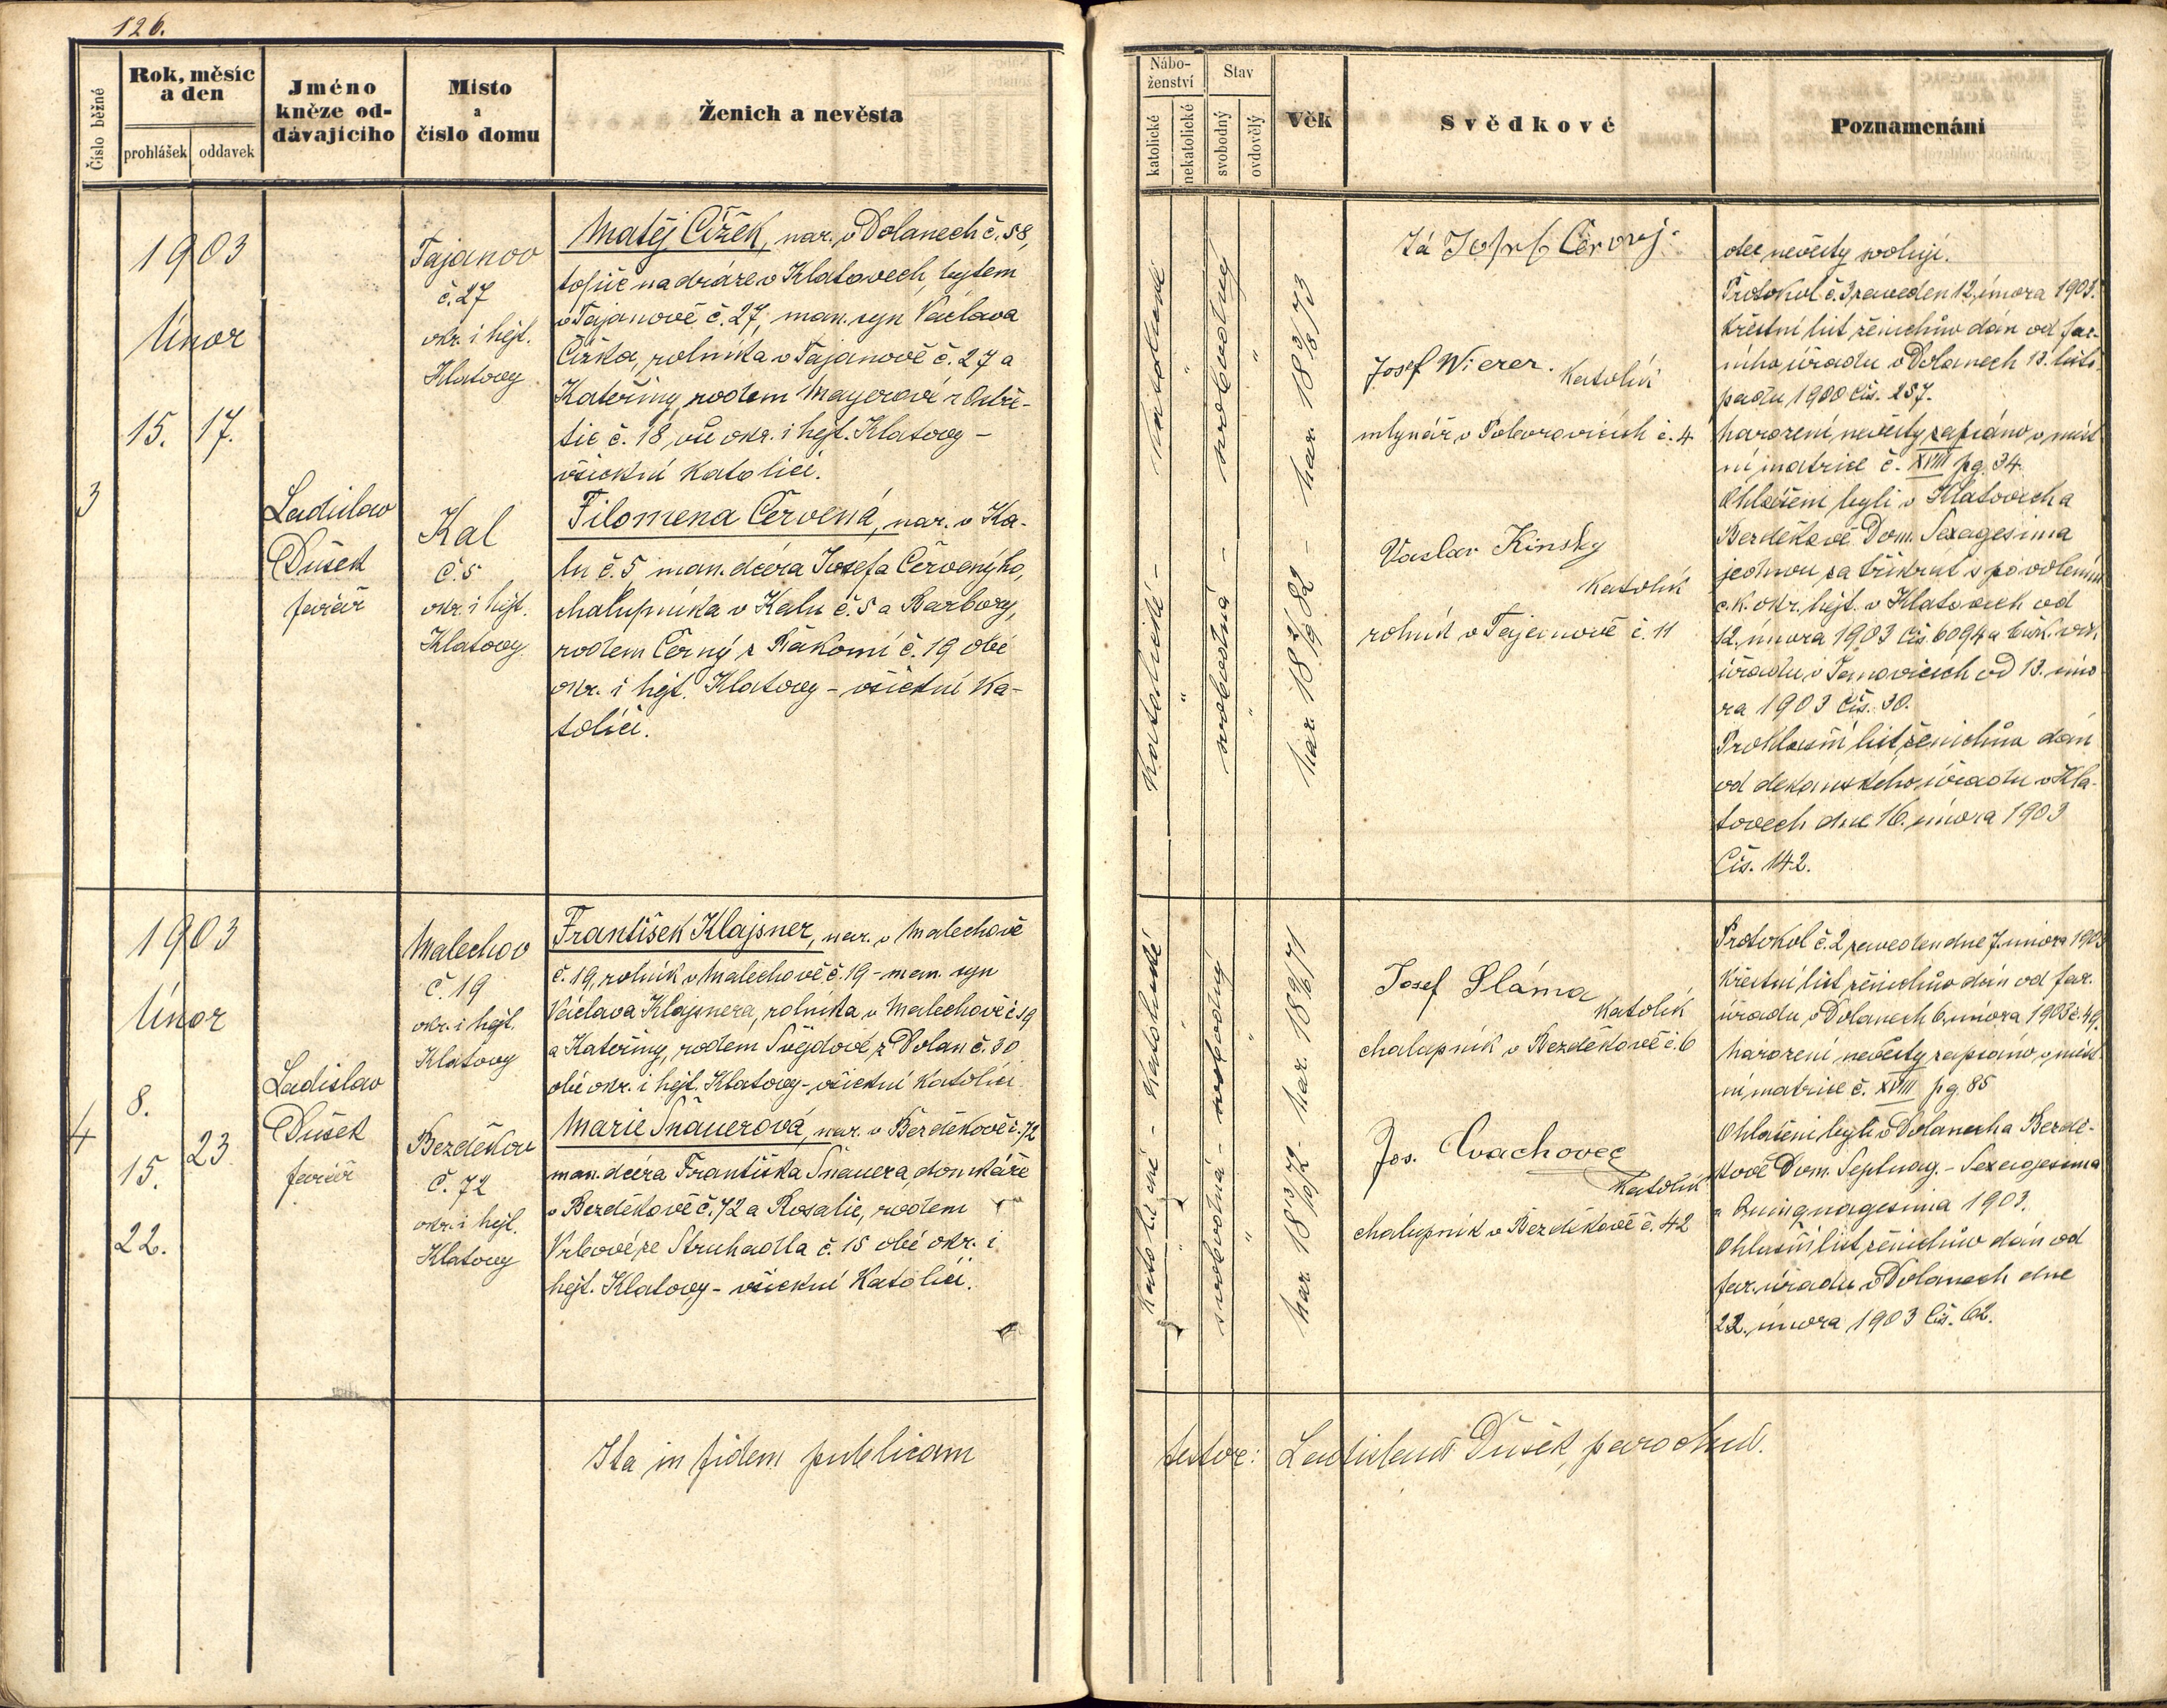 126.
Číslo běžné
Rok, měsíc
a den
prohlášek
oddavek
Jméno
kněze od-
dávajícího
Místo
a
číslo domu
Ženich a nevěsta
1903
Únor
15. 17.
3
Ladislav
Dušek
farář
Tajanov
č. 27
okr. i hejt.
Klatovy
Kal
č. 5
okr. i hejt.
Klatovy
Matěj Čížek, nar. v Dolanech č. 58,
topič na dráze v Klatovech, bytem
v Tajanově č. 27, man. syn Václava
Čížka, rolníka v Tajanově č. 27 a
Kateřiny rodem Mayerové z Ostře-
tic č. 18, vše okr. i hejt. Klatovy -
všickni katolíci.
Filomena Červená, nar. v Ka-
lu č. 5 man. dcera Josefa Červenýho,
chalupníka v Kalu č. 5 a Barbory,
rodem Černý z Řakomí č. 19 obé
okr. i hejt. Klatovy - všickni ka-
tolíci.
1903
Únor
8.
15.
22.
23.
4
Ladislav
Dušek
farář
Malechov
č. 19
okr. i hejt.
Klatovy
Bezděkov
č. 72
okr. i hejt.
Klatovy
František Klajsner, nar. v Malechově
č. 19, rolník v Malechově č. 19 - man. syn
Václava Klajsnera, rolníka v Malechově č 19
a Kateřiny, rodem Švejdové z Dolan č. 30
obé okr. i hejt. Klatovy - všickni katolíci
Marie Šnauerová, nar. v Bezděkově č. 72
man. dcera Františka Šnauera, domkáře
v Bezděkově č. 72 a Rosalie, rodem
Vrbové ze Struhadla č. 15 obé okr. i
hejt. Klatovy - všickni katolíci.
Ita in fidem publicam
Nábo-
ženství
katolické
nekatolické
Stav
svobodný
ovdovělý
Věk
Svědkové
Poznamenání
katolické - katolické
svobodná - svobodný
nar. 18 2/19 82 - nar. 18 3/8 73
Já Josef Červený
Josef Wierer. katolík
mlynář v Poborovicích č. 4
Vaclav Kinsky
katolík
rolník v Tajanově č. 11
otec nevěsty svoluji.
Protokol č. 3 zaveden 12. února 1903.
Křestní list ženichův dán od far-
ního úřadu v Dolanech 13. listo-
padu 1900 čís. 257.
Narození nevěsty zapsáno v míst
ní matrice č. XVIII pg. 34.
Ohlášeni byli v Klatovech a
Bezděkově Dom. Sexagesima
jednou za třikrát s povolením
c. k. okr. hejt. v Klatovech od
12. února 1903 čís. 6094 a bisk. vik.
úřadu v Janovicích od 13. úno
ra 1903 čís. 30.
Prohlašní list ženichův dán
od děkanského úřadu v Kla-
tovech dne 16. února 1903
Čís. 142.
katolické - katolické
svobodná - svobodný
nar. 18 3/10 72 - nar. 18 9/6 71
Josef Sláma
katolík
chalupník v Bezděkově č. 6
Jos. Cvachovec
katolík
chalupník v Bezděkově č. 42
Protokol č. 2 zaveden dne 7. února 1903
Křestní list ženichův dán od far.
úřadu v Dolanech 6. února 1903 č. 49.
Narození nevěsty zapsáno v míst
ní matrice č. XVIII pg. 85
Ohlášeni byli v Dolanech a Bezdě-
kově Dom. Septuag. - Sexagesima
a Quinquagesima 1903.
Ohlašní list ženichův dán od
far. úřadu v Dolanech dne
22. února 1903 čís. 62.
testor: Ladislaus Dušek, parochus.